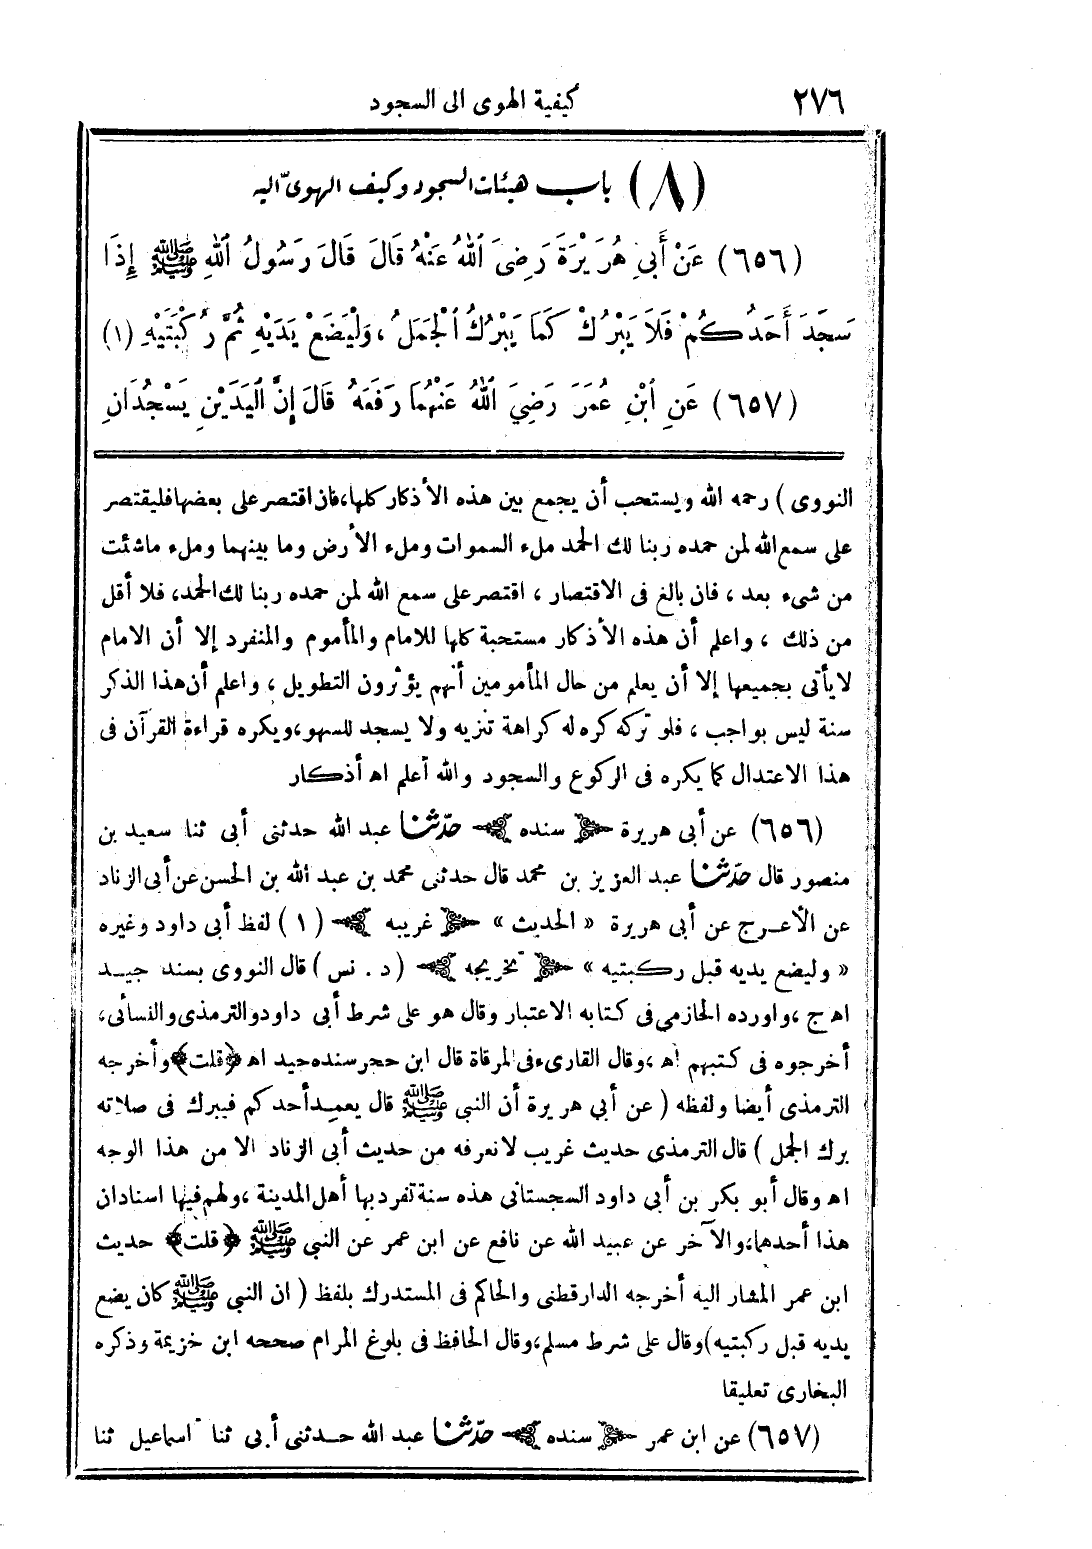 ٢٧٦ كيفية الهوى الى السجود
(٨) باب هيئات السجود وكيف الهوىّ اليه
(٦٥٦) عَنْ أَبِى هُرَيْرَةَ رَضِىَ ٱللهُ عَنْهُ قَالَ قَالَ رَسُولُ ٱللهِ ﷺ إِذَا
سَجَدَ أَحَدُكُمْ فَلَا يَبْرُكْ كَمَا يَبْرُكُ ٱلْجَمَلُ، وَلْيَضَعْ يَدَيْهِ ثُمَّ رُكْبَتَيْهِ (١)
(٦٥٧) عَنِ ٱبْنِ عُمَرَ رَضِيَ ٱللهُ عَنْهُمَا رَفَعَهُ قَالَ إِنَّ ٱلْيَدَيْنِ يَسْجُدَانِ
النووى) رحمه الله ويستحب أن يجمع بين هذه الأذكار كلها، فان اقتصر على بعضها فليقتصر
على سمع الله لمن حمده ربنا لك الحمد ملء السموات وملء الأرض وما بينهما وملء ماشئت
من شىء بعد ، فان بالغ فى الاقتصار ، اقتصر على سمع الله لمن حمده ربنا لك الحمد، فلا أقل
من ذلك ، واعلم أن هذه الأذكار مستحبة كلها للامام والمأموم والمنفرد إلا أن الامام
لايأتى بجميعها إلا أن يعلم من حال المأمومين أنهم يؤثرون التطويل ، واعلم أن هذا الذكر
سنة ليس بواجب ، فلو تركه كره له كراهة تنزيه ولا يسجد للسهو، ويكره قراءة القرآن فى
هذا الاعتدال كما يكره فى الركوع والسجود والله أعلم اه أذكار
(٦٥٦) عن أبى هريرة ﴿ سنده ﴾ حدّثنا عبد الله حدثنى أبى ثنا سعيد بن
منصور قال حدّثنا عبد العزيز بن محمد قال حدثنى محمد بن عبد الله بن الحسن عن أبى الزناد
عن الأعرج عن أبى هريرة « الحديث » ﴿ غريبه ﴾ (١) لفظ أبى داود وغيره
« وليضع يديه قبل ركبتيه » ﴿ تخريجه ﴾ (د . نس) قال النووى بسند جيد
اه ج ، واورده الحازمي فى كتابه الاعتبار وقال هو على شرط أبى داود والترمذى والنسائى،
أخرجوه فى كتبهم اه ، وقال القارىء فى المرقاة قال ابن حجر سنده جيد اه ﴿قلت﴾ وأخرجه
الترمذى أيضا ولفظه (عن أبي هريرة أن النبي ﷺ قال يعمد أحدكم فيبرك فى صلاته
برك الجمل) قال الترمذى حديث غريب لا نعرفه من حديث أبى الزناد الا من هذا الوجه
اه وقال أبو بكر بن أبى داود السجستانى هذه سنة تفرد بها أهل المدينة ، ولهم فيها اسنادان
هذا أحدهما، والآخر عن عبيد الله عن نافع عن ابن عمر عن النبي ﷺ ﴿قلت﴾ حديث
ابن عمر المشار اليه أخرجه الدارقطنى والحاكم فى المستدرك بلفظ (ان النبي ﷺ كان يضع
يديه قبل ركبتيه) وقال على شرط مسلم، وقال الحافظ فى بلوغ المرام صححه ابن خزيمة وذكره
البخارى تعليقا
(٦٥٧) عن ابن عمر ﴿ سنده ﴾ حدّثنا عبد الله حدثنى أبى ثنا اسماعيل ثنا